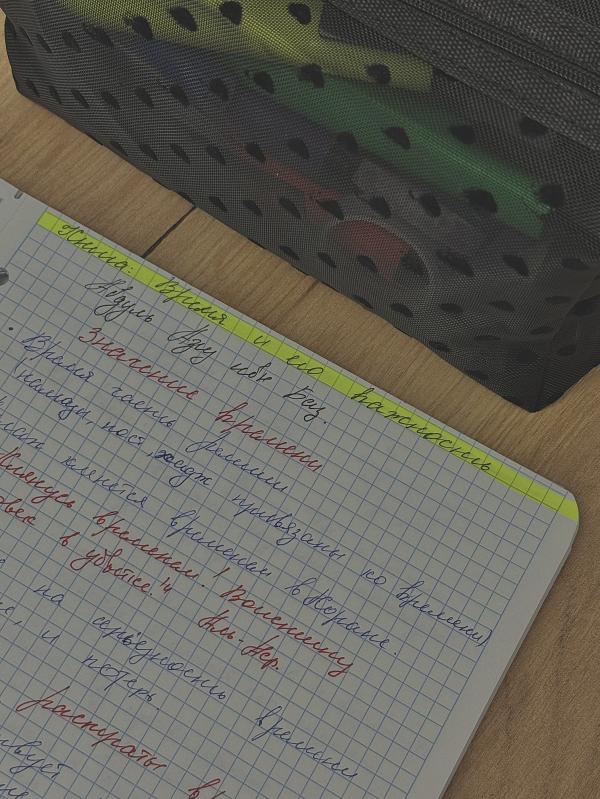 Книга: Время и его важность
Абдуль Азиз ибн Баз.
Значение времени
• Время часть религии
намазы, пост, хадж привязаны ко времени)
клянется временем в Коране.
Клянусь временем! Воистину
в убытке!" Аль-Аср.
на серьёзность времени
и потерь.
растраты